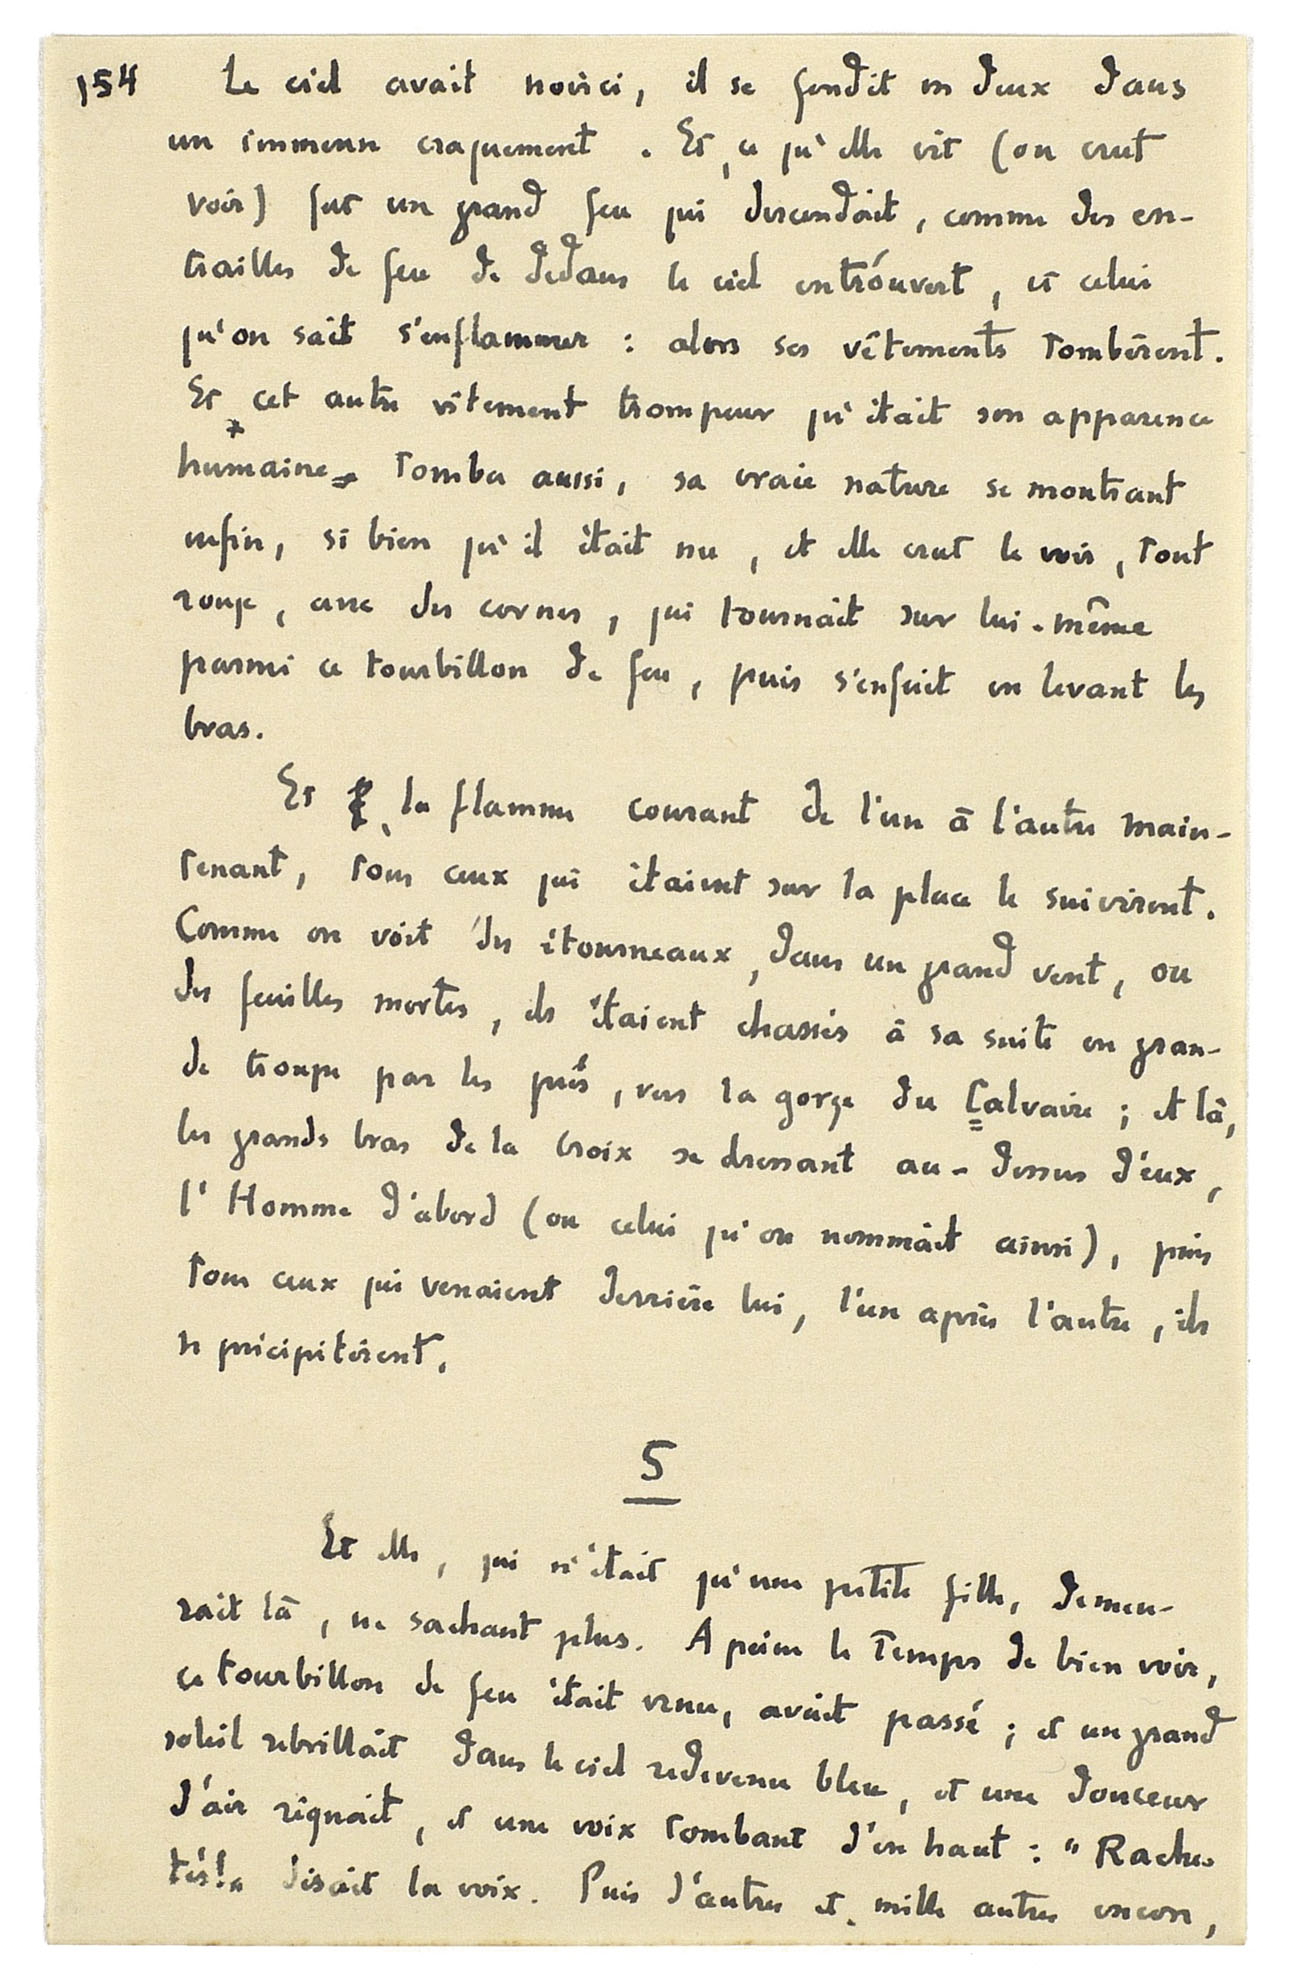 154 Le ciel avait noirci, il se fendit en deux dans
un immense craquement. Et, ce qu'elle vit (ou crut
voir) fut un grand feu qui descendait, comme des en-
trailles de feu de dedans le ciel entr'ouvert, et celui
qu'on sait s'enflammer : alors ses vêtements tombèrent.
Et cet autre vêtement trompeur qu'était son apparence
humaine tomba aussi, sa vraie nature se montrant
enfin, si bien qu'il était nu, et elle crut le voir, tout
rouge, avec des cornes, qui tournait sur lui-même
parmi ce tourbillon de feu, puis s'enfuit en levant les
bras.
Et la flamme courant de l'un à l'autre main-
tenant, tous ceux qui étaient sur la place le suivirent.
Comme on voit des étourneaux, dans un grand vent, ou
des feuilles mortes, ils étaient chassés à sa suite en gran-
de troupe par les prés, vers la gorge du Calvaire ; et là,
les grands bras de la Croix se dressant au-dessus d'eux,
l'Homme d'abord (ou celui qu'on nommait ainsi), puis
tous ceux qui venaient derrière lui, l'un après l'autre, ils
se précipitèrent.
5
Et elle, qui n'était qu'une petite fille, demeu-
rait là, ne sachant plus. A peine le temps de bien voir,
ce tourbillon de feu était venu, avait passé ; et un grand
soleil rebrillait dans le ciel redevenu bleu, et une douceur
d'air régnait, et une voix tombant d'en haut : "Rache-
tés!" disait la voix. Puis d'autres et mille autres encore,